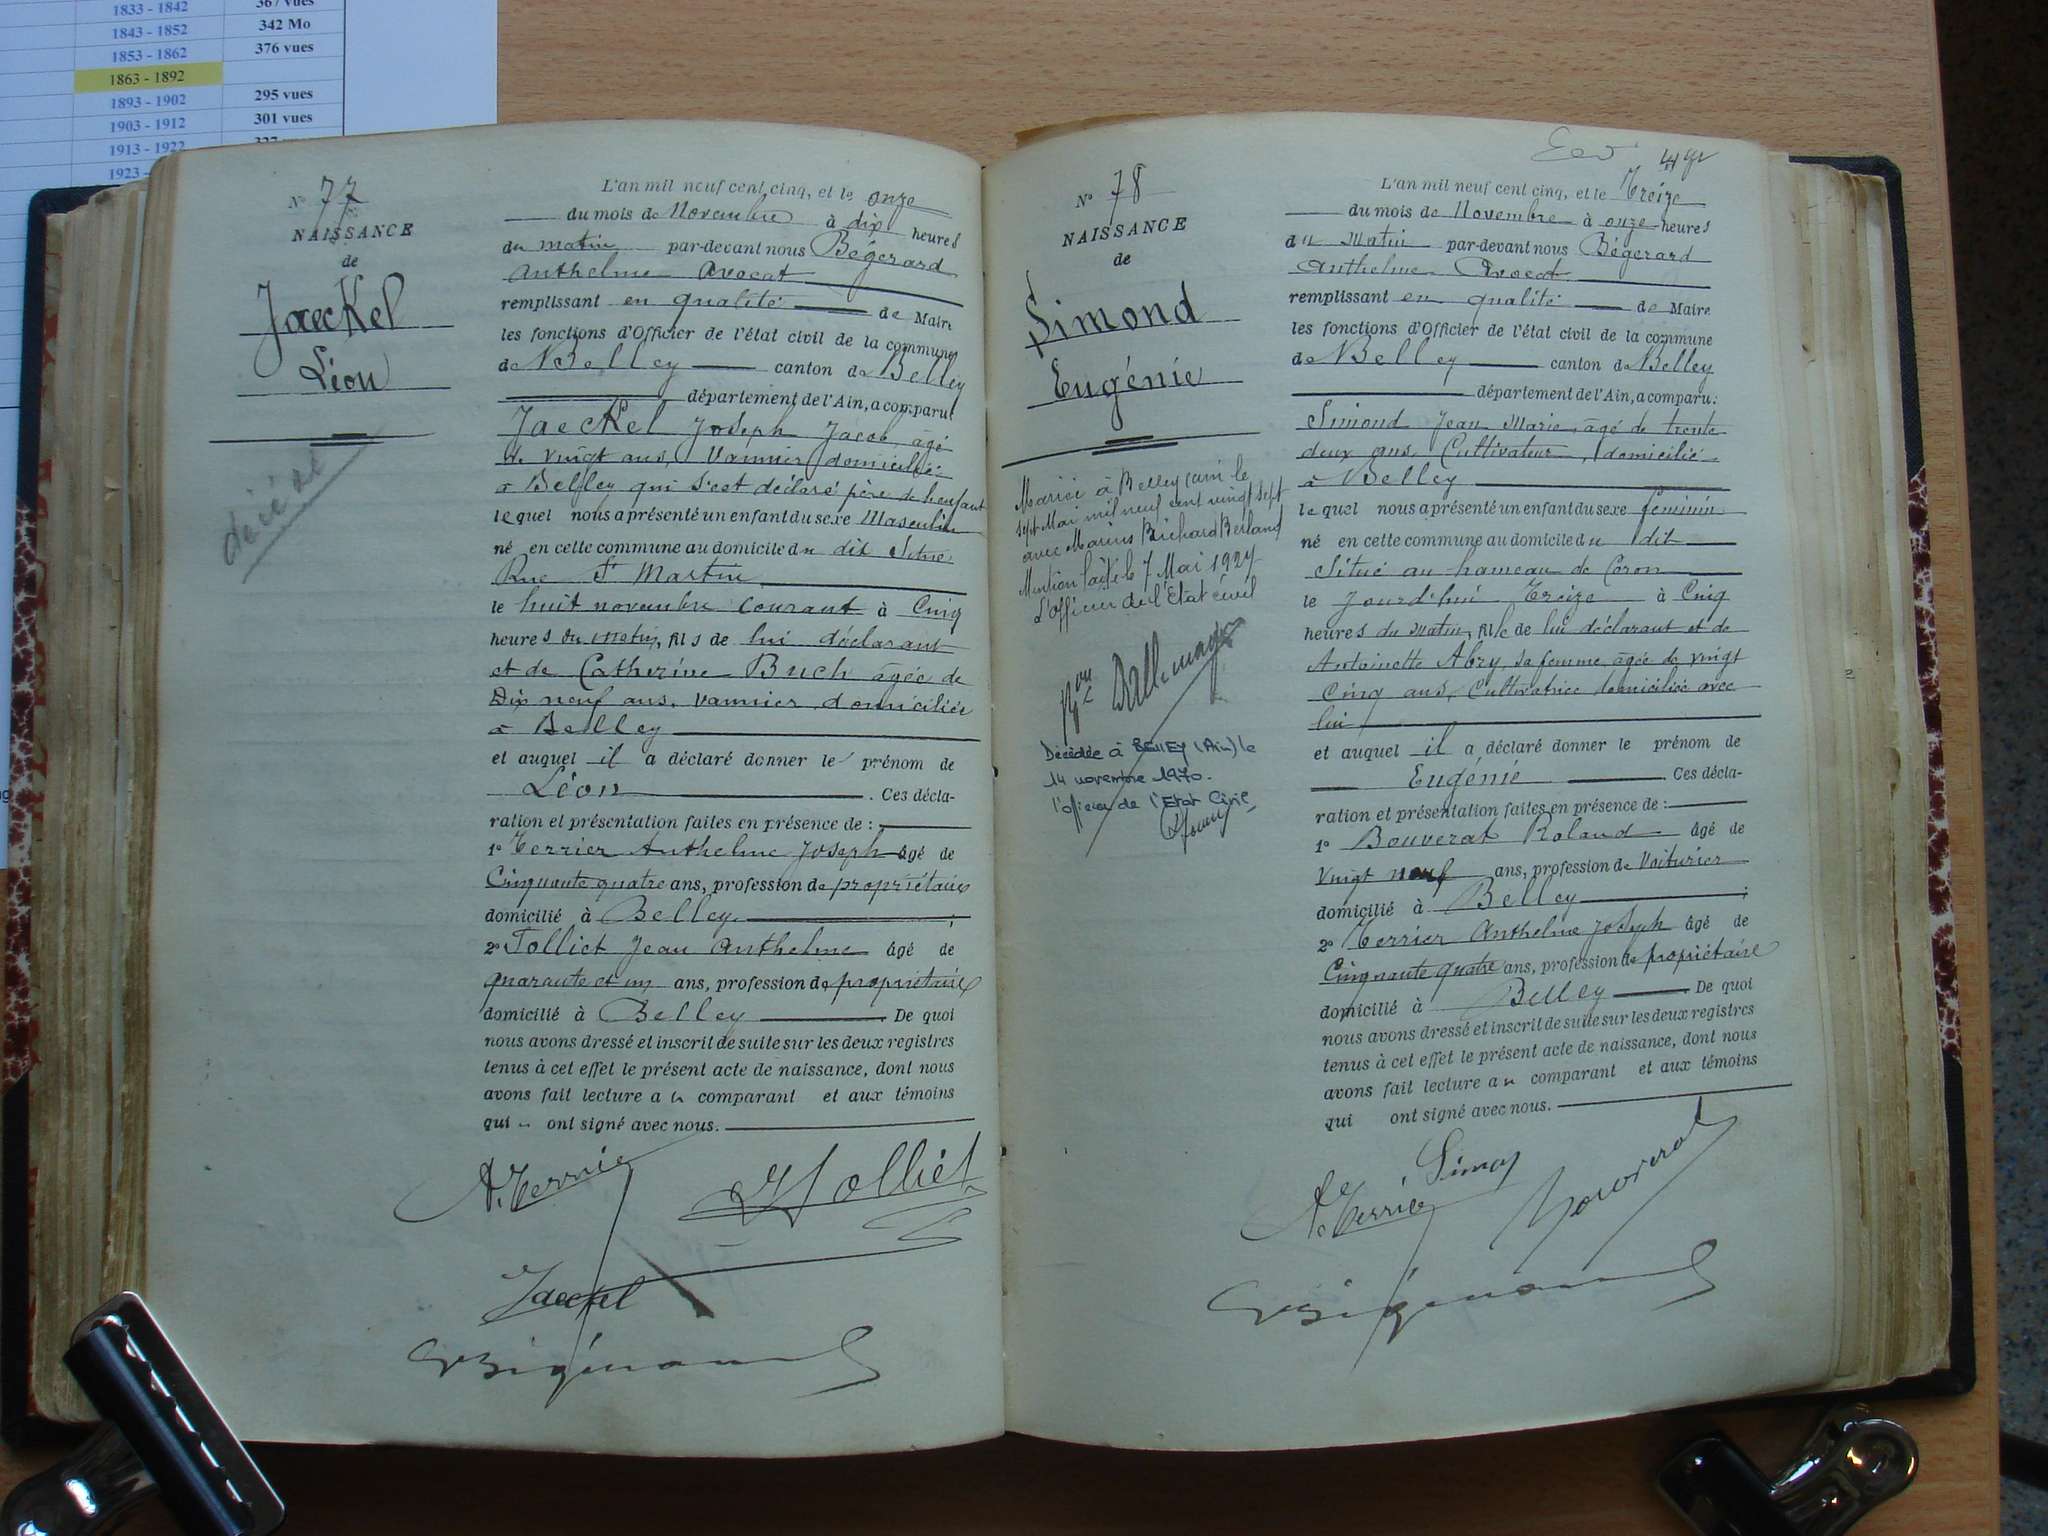 1833 - 1842 367 vues
1843 - 1852 342 Mo
1853 - 1862 376 vues
1863 - 1892
1893 - 1902 295 vues
1903 - 1912 301 vues
1913 - 1922
1923 -
N° 77
NAISSANCE
de
Jaeckel
Léon
décédé
L'an mil neuf cent cinq, et le onze
du mois de Novembre à dix heures
du matin par-devant nous Bégerard
Anthelme Avocat
remplissant en qualité de Maire
les fonctions d'Officier de l'état civil de la commune
de Belley canton de Belley
département de l'Ain, a comparu
Jaeckel Joseph Jacob, âgé
de vingt ans, Vannier domicilié
à Belley qui s'est déclaré père de l'enfant
lequel nous a présenté un enfant du sexe Masculin
né en cette commune au domicile du dit Situé
Rue St Martin
le huit novembre courant à Cinq
heures du matin, fils de lui déclarant
et de Catherine Buch âgée de
Dix neuf ans, vannier domiciliée
à Belley
et auquel il a déclaré donner le prénom de
Léon . Ces décla-
ration et présentation faites en présence de :
1° Terrier Anthelme Joseph âgé de
Cinquante quatre ans, profession de propriétaire
domicilié à Belley ;
2° Tolliet Jean Anthelme âgé de
quarante et un ans, profession de propriétaire
domicilié à Belley . De quoi
nous avons dressé et inscrit de suite sur les deux registres
tenus à cet effet le présent acte de naissance, dont nous
avons fait lecture au comparant et aux témoins
qui ont signé avec nous.
A. Terrier Tolliet
Jaeckel
N° 78
NAISSANCE
de
Simond
Eugénie
Mariée à Belley (ain) le
sept Mai mil neuf cent vingt sept
avec Marius Brichard Berland
Mention faite le 7 Mai 1927
L'Officier de l'État civil
Décédée à BELLEY (Ain) le
14 novembre 1970.
l'officier de l'Etat Civil,
L'an mil neuf cent cinq, et le Treize
du mois de Novembre à onze heures
du Matin par-devant nous Bégerard
Anthelme Avocat
remplissant en qualité de Maire
les fonctions d'Officier de l'état civil de la commune
de Belley canton de Belley
département de l'Ain, a comparu :
Simond Jean Marie, âgé de trente
deux ans, Cultivateur, domicilié
à Belley
lequel nous a présenté un enfant du sexe féminin
né en cette commune au domicile du dit
Situé au hameau de Coron
le Jourd'hui Treize à Cinq
heures du Matin, fille de lui déclarant et de
Antoinette Abry, sa femme, âgée de vingt
Cinq ans, Cultivatrice domiciliée avec
lui
et auquel il a déclaré donner le prénom de
Eugénie . Ces décla-
ration et présentation faites en présence de :
1° Bouverat Roland âgé de
Vingt neuf ans, profession de Voiturier
domicilié à Belley ;
2° Terrier Anthelme Joseph âgé de
Cinquante quatre ans, profession de propriétaire
domicilié à Belley . De quoi
nous avons dressé et inscrit de suite sur les deux registres
tenus à cet effet le présent acte de naissance, dont nous
avons fait lecture au comparant et aux témoins
qui ont signé avec nous.
Simon
A. Terrier Bouverat